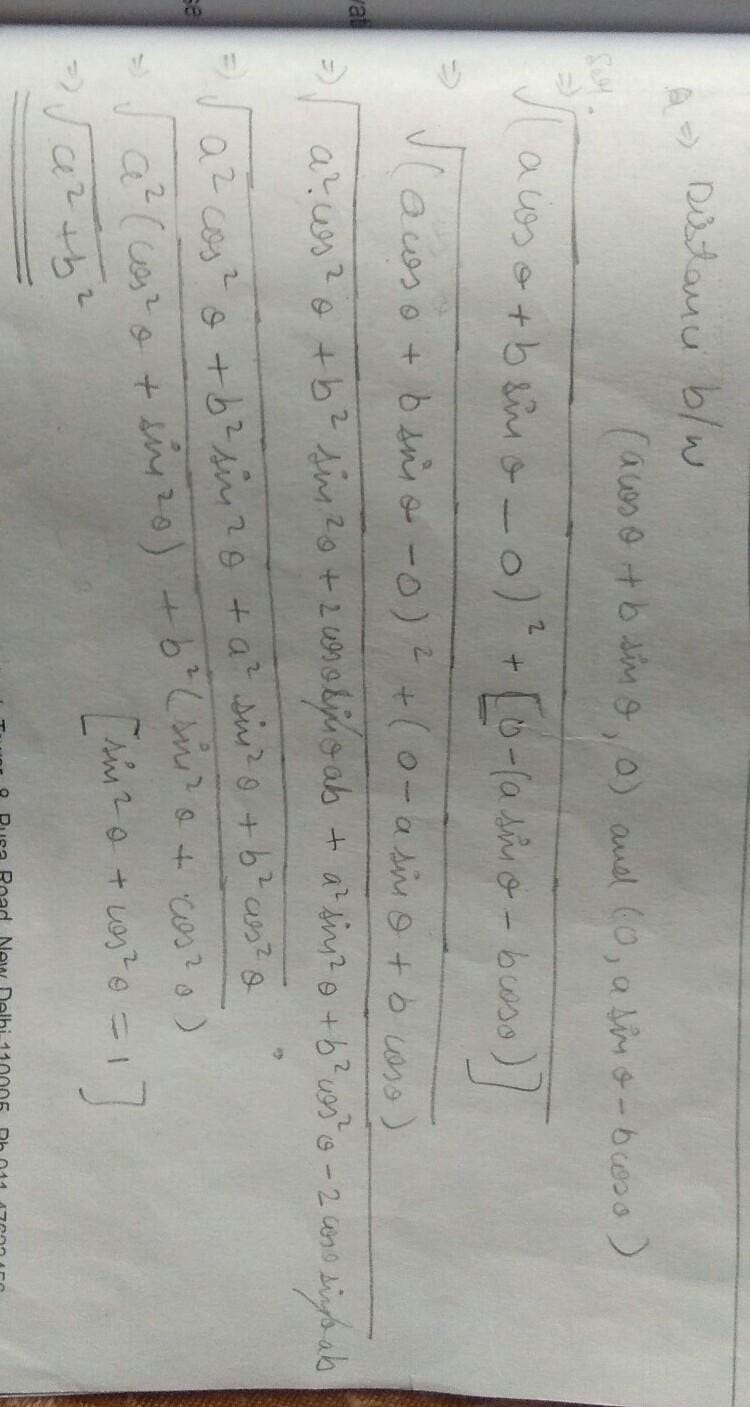 Q => Distance b/w
(acosθ + b sinθ, 0) and (0, a sinθ - bcosθ)
Sol.
=> √(acosθ + b sinθ - 0)² + [0 - (a sinθ - bcosθ)]
=> √(acosθ + b sinθ - 0)² + (0 - a sinθ + b cosθ)
=> √a² cos²θ + b² sin²θ + 2cosθsinθab + a² sin²θ + b² cos²θ - 2 cosθ sinθab
=> √a² cos²θ + b² sin²θ + a² sin²θ + b² cos²θ
=> √a² (cos²θ + sin²θ) + b² (sin²θ + cos²θ)
[sin²θ + cos²θ = 1]
=> √a² + b²
8 Pusa Road, New Delhi-110005, Ph.011